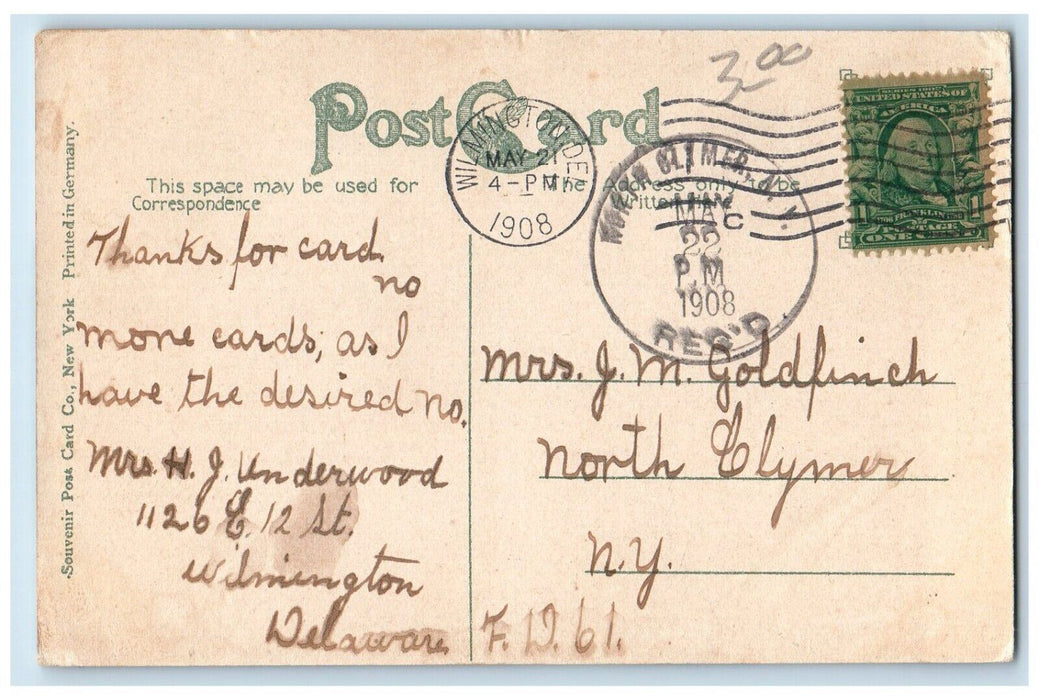 3.00
Post Card
This space may be used for
Correspondence
The Address only to be
Written Here
WILMINGTON, DE
MAY 21
4-PM
1908
NORTH CLYMER, N.Y.
MAY
22
P.M
1908
REC'D.
C
SERIES 1902
UNITED STATES OF
AMERICA
1 FRANKLIN 1
POSTAGE
ONE
Souvenir Post Card Co., New York Printed in Germany.
Thanks for card
no
more cards, as I
have the desired no.
Mrs H. J. Underwood
1126 E. 12 St.
Wilmington
Delaware
Mrs. J. M. Goldfinch
North Clymer
N.Y.
F. D. 61.